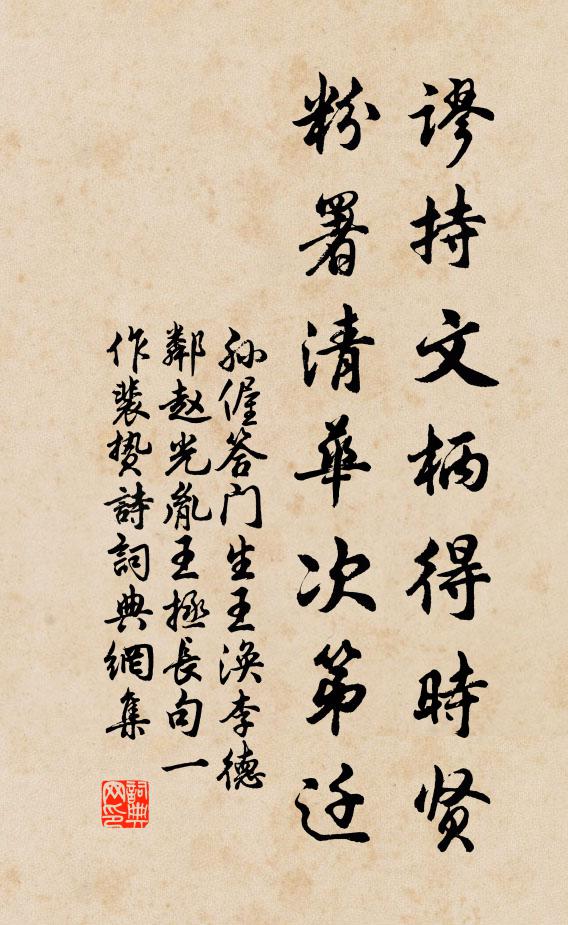 谬持文柄得時贤
粉署清華次第迁
孙偓答门生王涣李德
鄰赵光胤王拯長句一
作裴贽詩詞典網集
詞典网印